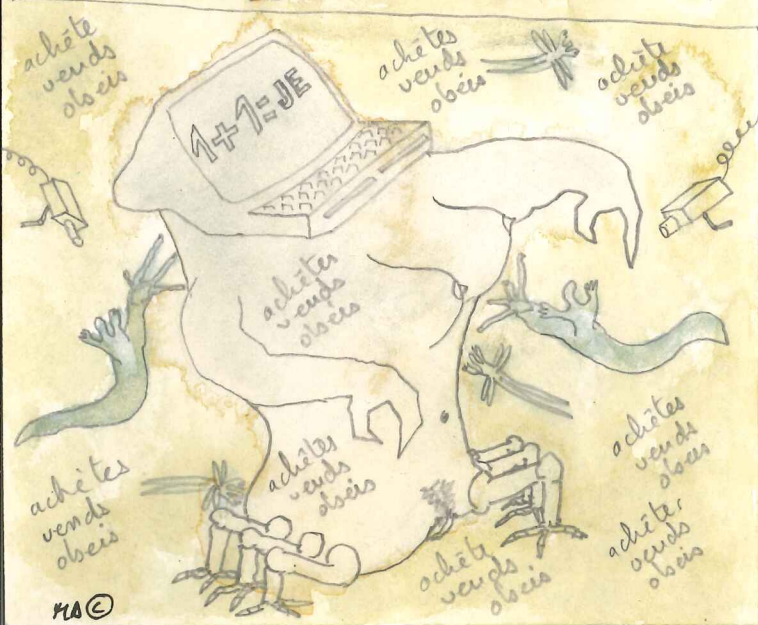 achète
vends
obéis
achètes
vends
obéis
achète
vends
obéis
1+1=JE
achètes
vends
obéis
achètes
vends
obéis
achètes
vends
obéis
achètes
vends
obéis
achète
vends
obéis
achète,
vends
obéis
MA©